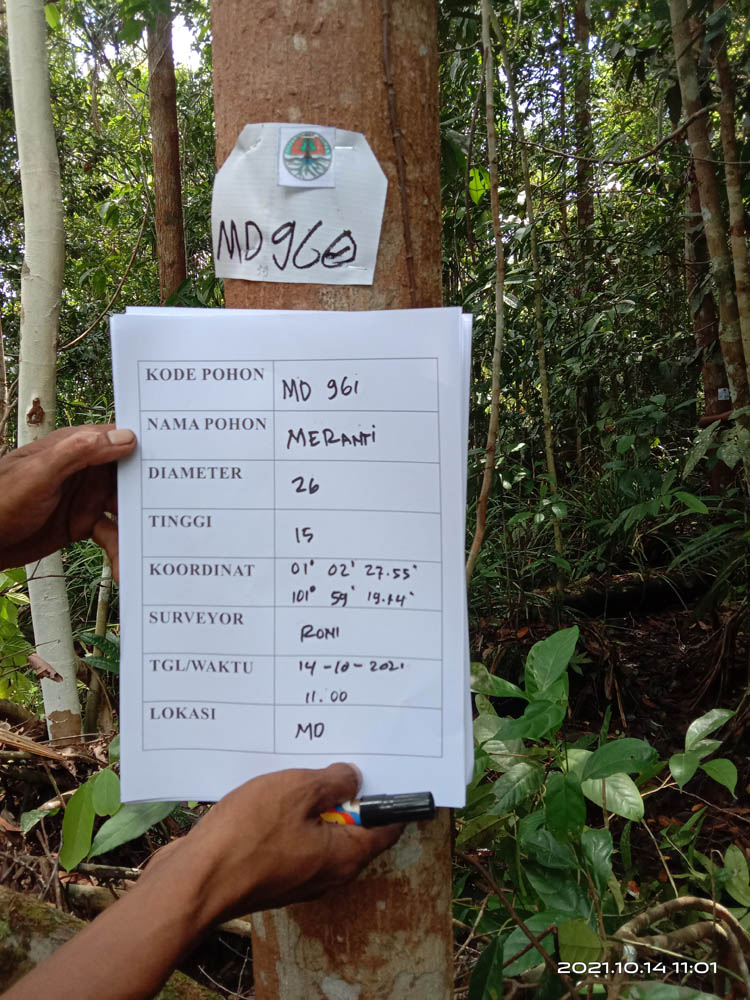 MD 960
KODE POHON MD 961
NAMA POHON MERANTI
DIAMETER 26
TINGGI 15
KOORDINAT 01° 02' 27.55"
101° 59' 19.14"
SURVEYOR RONI
TGL/WAKTU 14-10-2021
11.00
LOKASI MD
2021.10.14 11:01